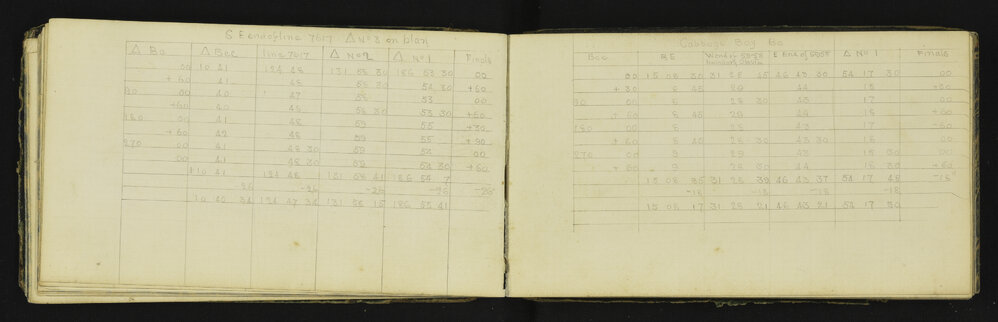 S E end of line 7617 △ No 3 on plan
△ Ba △ Bec line 7617 △ No 2 △ No 1 Finals
00 10 41 124 48 131 58 30 186 53 30 00
+ 60 41 48 58 30 54 30 +60
90 00 40 47 58 53 00
+60 40 48 58 30 53 30 +60
180 00 41 48 59 55 +30
+ 60 42 48 59 55 +90
270 00 41 48 30 59 54 00
00 41 48 30 59 54 30 +60
10 41 124 48 131 58 41 186 54 7
-26 -26 -26 -26 -26
10 40 34 124 47 34 131 58 15 186 53 41
Cabbage Bay Ba
Bec RE E End of 5855 △ No 1 Finals
00 15 08 30 31 28 45 46 43 30 54 17 30 00
+ 30 8 45 29 44 18 +30
90 00 8 28 30 43 17 00
+ 60 8 45 29 44 18 +60
180 00 8 28 43 17 -60
+ 60 8 28 30 43 30 8 00
270 00 9 29 43 18 30 00
+ 60 9 28 30 44 18 30 +60
15 08 35 31 28 39 46 43 37 54 17 48 -18
-18 -18 -18 -18
15 08 17 31 28 21 46 43 21 54 17 30